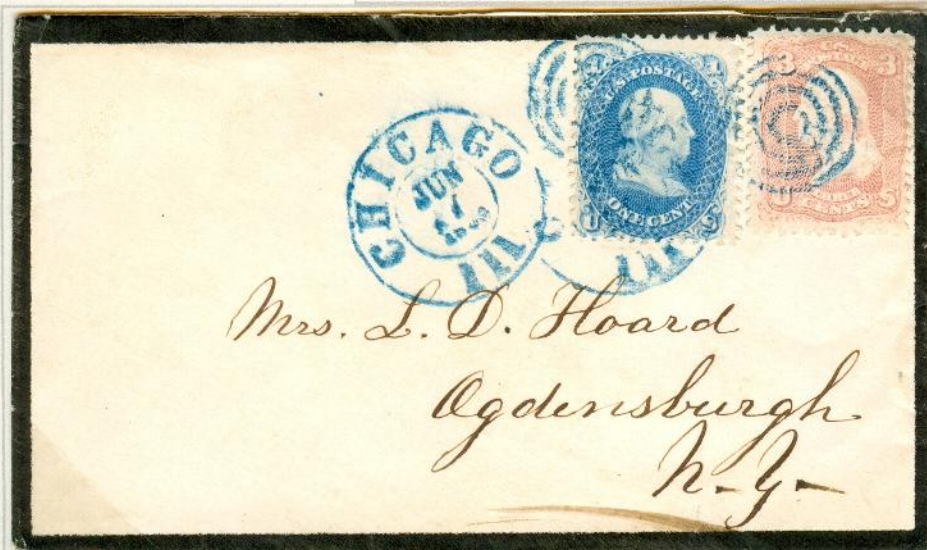 CHICAGO
JUN
Ill
U.S. POSTAGE
ONE CENT
U S
3 3
U S
CENTS
Mrs. L. D. Hoard
Ogdensburgh
N-Y-